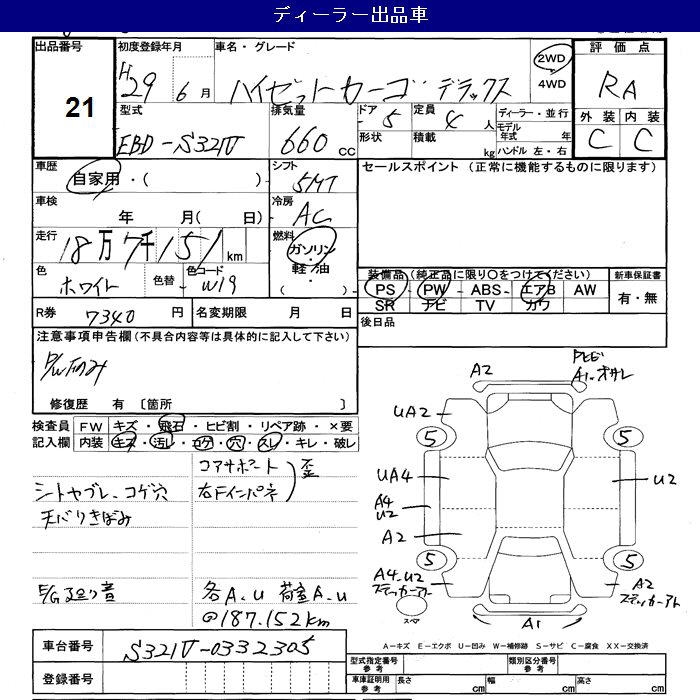 ディーラー出品車
出品番号
21
初度登録年月
H29 6 月
車名・グレード
ハイゼットカーゴ デラックス
2WD
4WD
評価点
RA
外装 内装
C C
型式
EBD-S321V
排気量
660 cc
ドア
5
形状
定員
4 人
積載
kg
ディーラー・並行
モデル年式 年
ハンドル 左・右
車歴
自家用・( )
シフト
5MT
セールスポイント (正常に機能するものに限ります)
車検
年 月( 日)
冷房
AC
走行
18万7千151 km
燃料
ガソリン
軽油
( )
色
ホワイト
色替
色コード
W19
装備品 (純正品に限り〇をつけてください)
PS PW ABS エアB AW
SR ナビ TV カワ
新車保証書
有・無
R券 7340 円
名変期限 月 日
後日品
注意事項申告欄 (不具合内容等は具体的に記入して下さい)
P/W下のみ
修復歴 有 〔箇所 〕
検査員記入欄
FW キズ・飛石・ヒビ割・リペア跡・×要
内装 キズ・汚レ・コゲ・穴・スレ・キレ・破レ
コアサポート
右Fインパネ
歪
シートヤブレ、コゲ穴
天バリきばみ
E/G廻り音
各A、U 荷室A、U
@187.152km
A2
UA2
5
5
UA4
A4
U2
U2
A2
5
5
A4、U2
ステッカーアト
A2
ステッカーアト
A1
スペア
A-キズ E-エクボ U-凹み W-補修跡 S-サビ C-腐食 XX-交換済
車台番号
S321V-0332305
登録番号
型式指定番号 参考
類別区分番号 参考
車庫証明用 参考
長さ cm
幅 cm
高さ cm